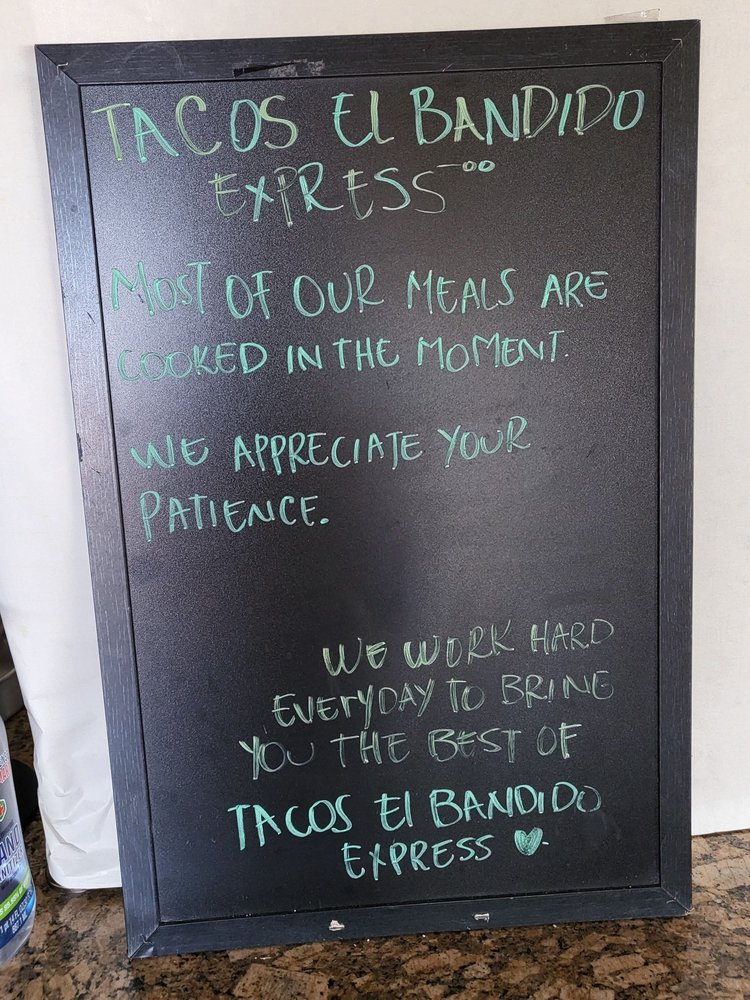 TACOS El BANDIDO
EXPRESS
MOST OF OUR MEALS ARE
COOKED IN THE MOMENT.
WE APPRECIATE YOUR
PATIENCE.
WE WORK HARD
EVERYDAY TO BRING
YOU THE BEST OF
TACOS El BANDIDO
EXPRESS ♥.